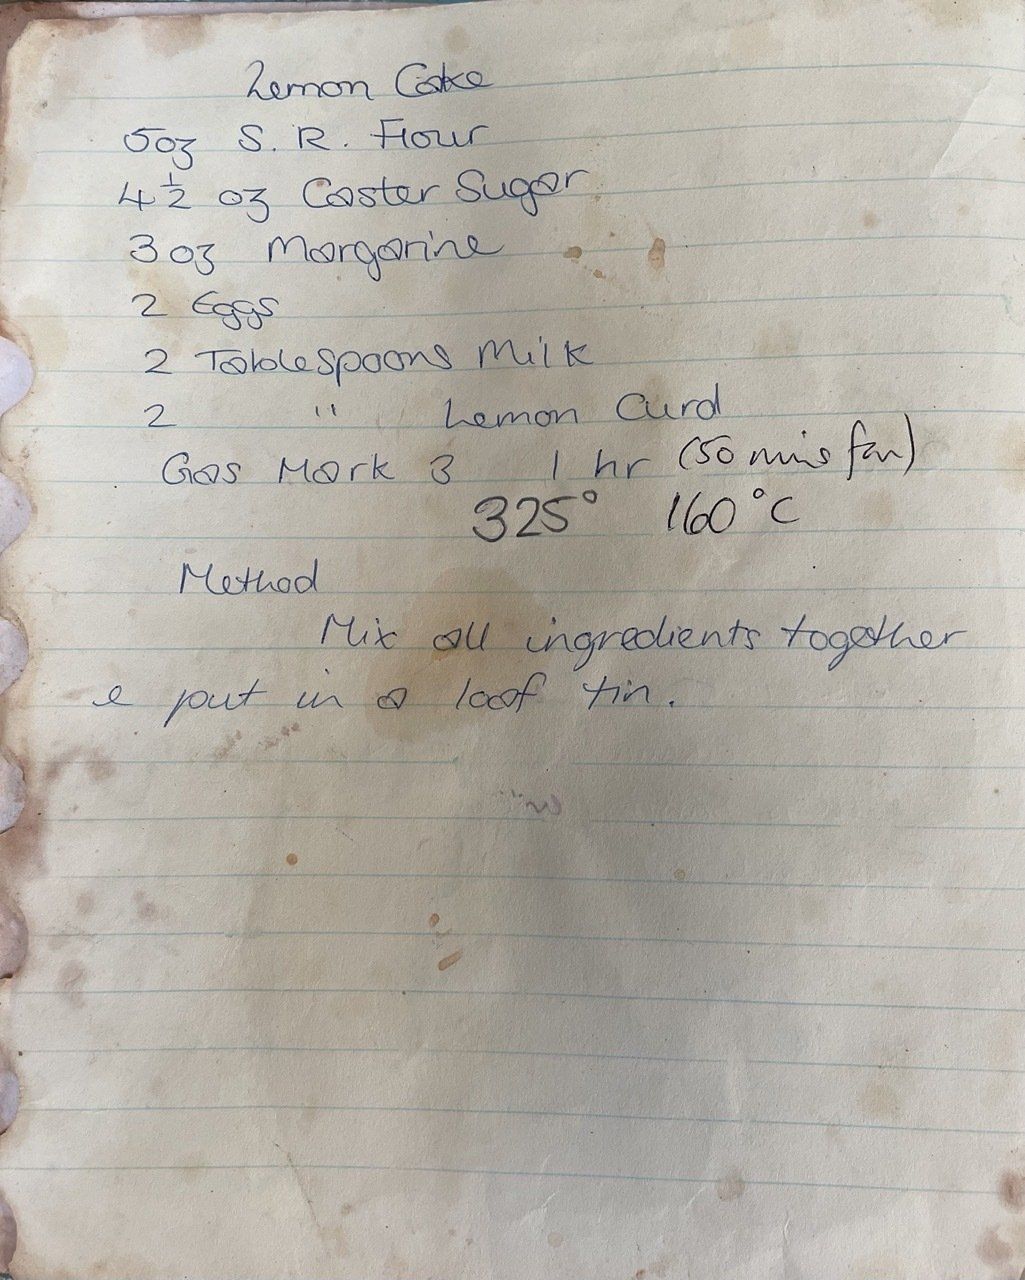 Lemon Cake
5oz S. R. Flour
4½ oz Caster Sugar
3oz Margarine
2 Eggs
2 Tablespoons Milk
2 " Lemon Curd
Gas Mark 3 1 hr (50 mins fan)
325° 160°C
Method
Mix all ingredients together
& put in a loaf tin.